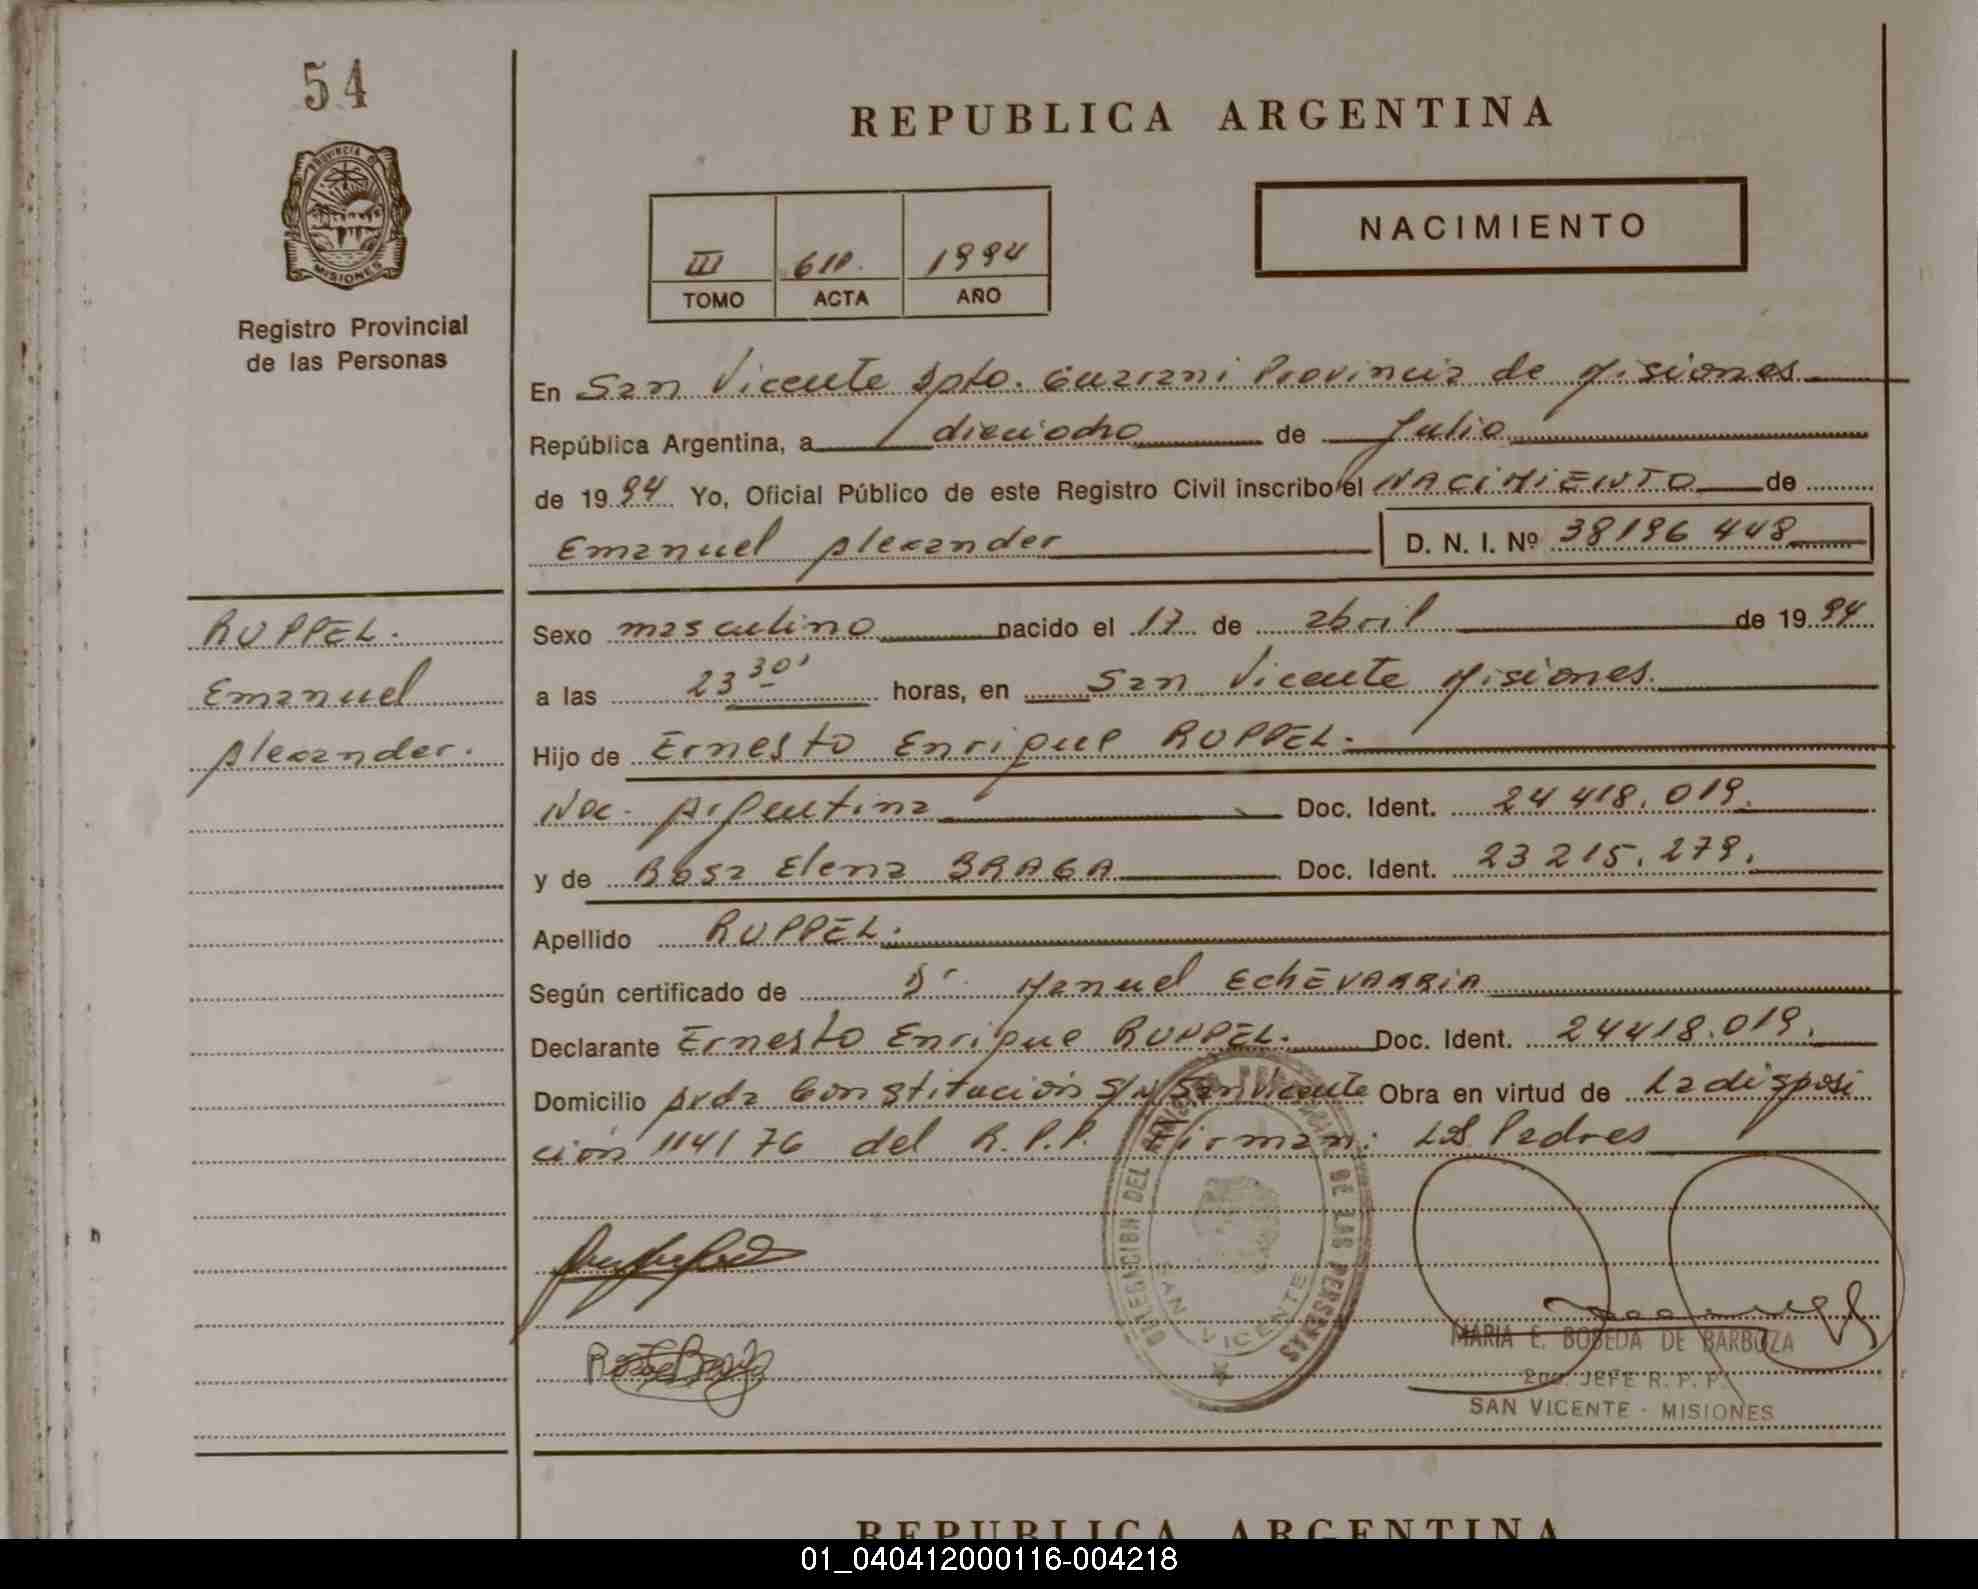 54
PROVINCIA DE
MISIONES
Registro Provincial
de las Personas
REPUBLICA ARGENTINA
III 610. 1994
TOMO ACTA AÑO
NACIMIENTO
En San Vicente Dpto. Guarani Provincia de Misiones
República Argentina, a dieciocho de Julio
de 1994 Yo, Oficial Público de este Registro Civil inscribo el NACIMIENTO de
Emanuel Alexander D. N. I. Nº 38196 448
RUPPEL.
Emanuel
Alexander.
Sexo masculino nacido el 17 de abril de 1994
a las 23 30' horas, en San Vicente Misiones.
Hijo de Ernesto Enrique RUPPEL.
Nac. Argentina Doc. Ident. 24 418.019.
y de Rosa Elena BRAGA Doc. Ident. 23 215.279.
Apellido RUPPEL.
Según certificado de Dr. Manuel EchEVARRIA
Declarante Ernesto Enrique RUPPEL. Doc. Ident. 24418.019.
Domicilio Avda Constitución S/N San Vicente Obra en virtud de La disposi
ción 114/76 del R.P.P. Firman: Los Padres
DELEGACION DEL REGISTRO PROVINCIAL DE LAS PERSONAS
SAN VICENTE
MARIA E. BOBEDA DE BARBOZA
2do. JEFE R. P. P.
SAN VICENTE - MISIONES
REPUBLICA ARGENTINA
01_040412000116-004218